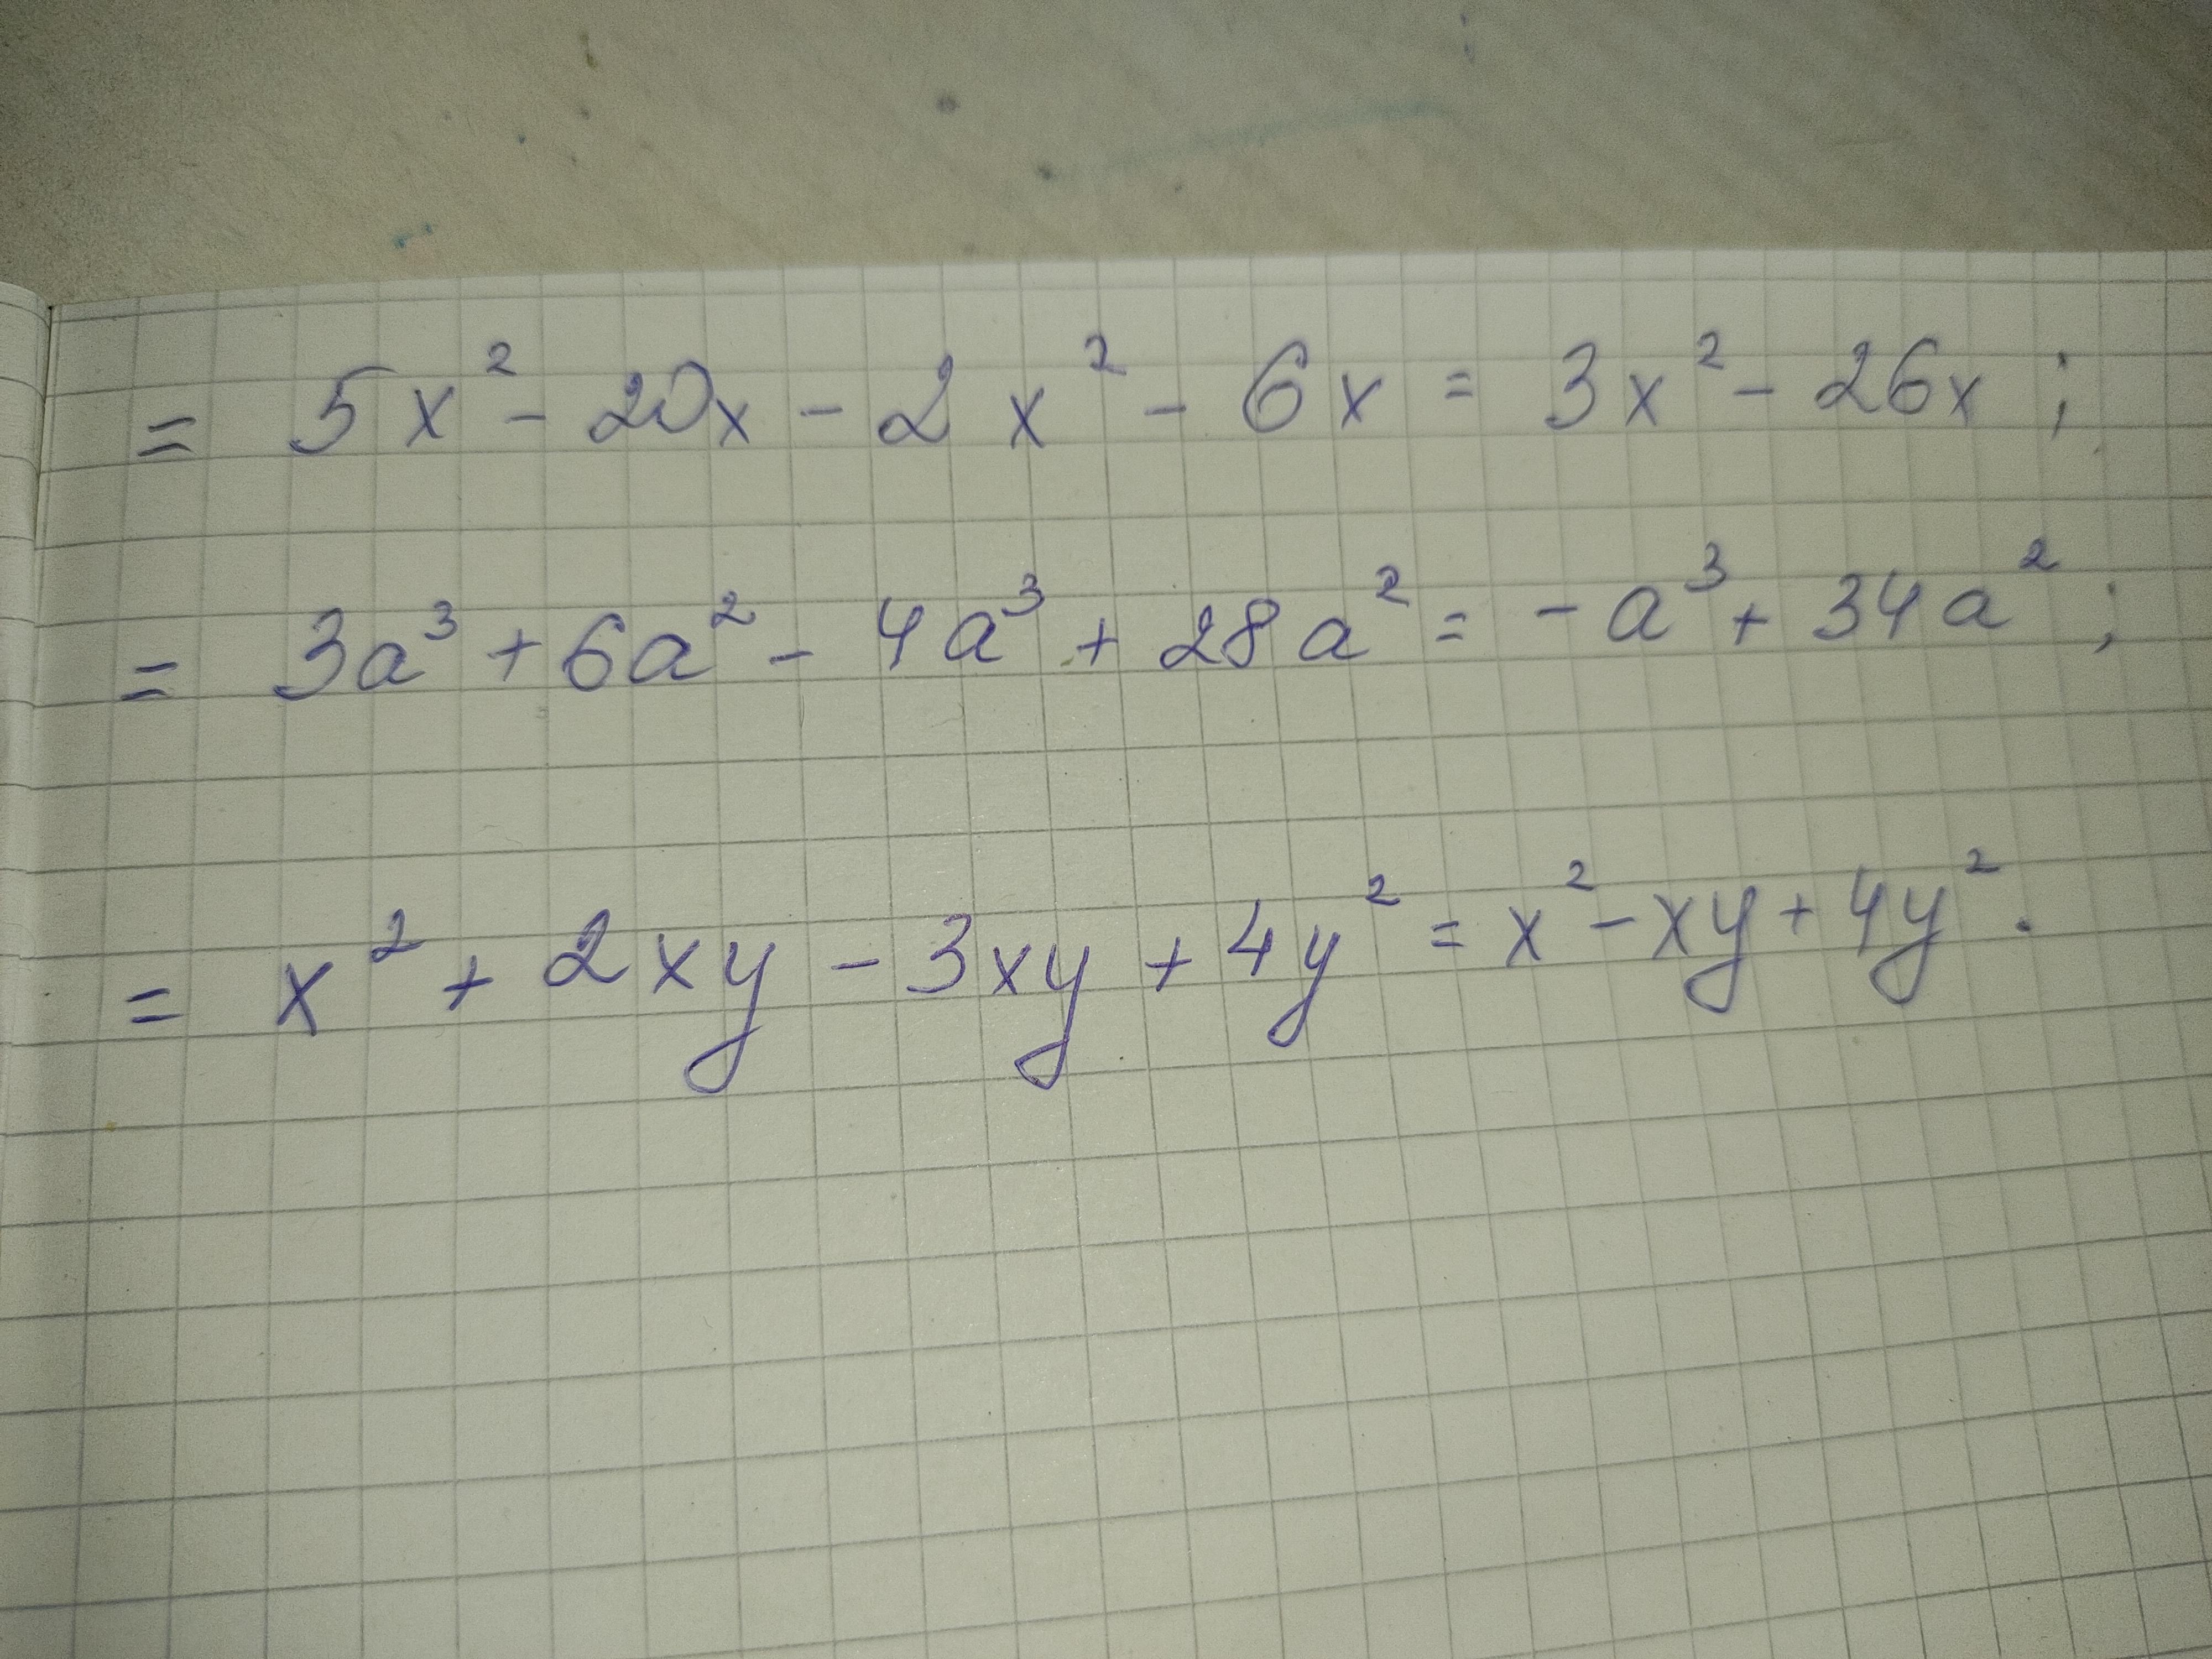 = 5x² - 20x - 2x² - 6x = 3x² - 26x ;
= 3a³ + 6a² - 4a³ + 28a² = - a³ + 34a² ;
= x² + 2xy - 3xy + 4y² = x² - xy + 4y² .